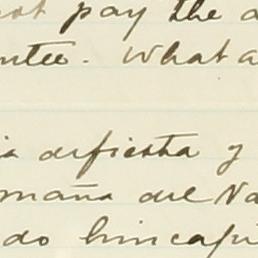 not pay the a
ntee. What a
ia defiesta y
maña del Va
do hincapi